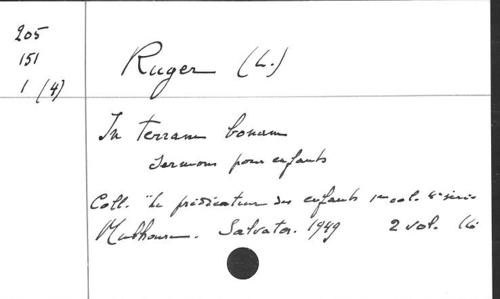 205
151
1 (4)
Ruger (L.)
In terram bonam
Sermons pour enfants
Coll. "Le prédicateur des enfants 4e série
Mulhouse. Salvator. 1949 2 vol. 16